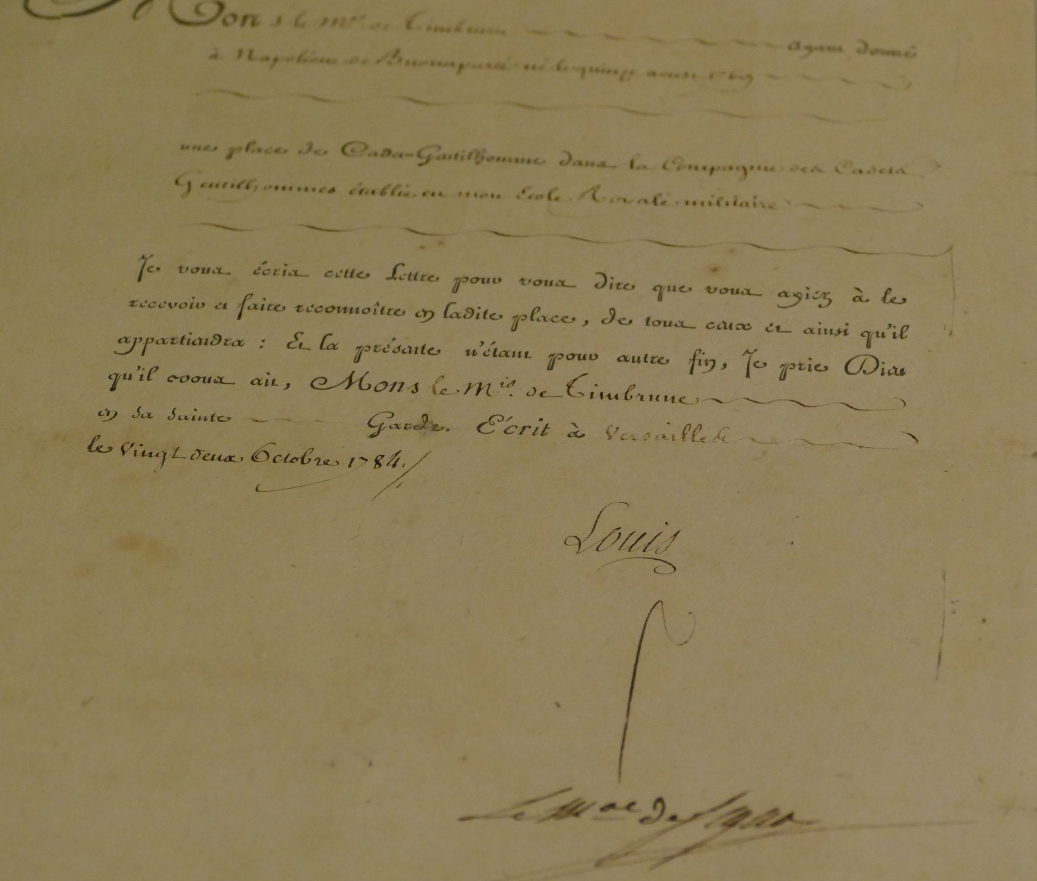 Mons le Mis de Timbrune ayant donné
à Napoléone de Buonaparte né le quinze aoust 1769
une place de Cadet-Gentilhomme dans la Compagnie des Cadets
Gentilshommes établie en mon École Royale militaire
Je vous écris cette Lettre pour vous dire que vous ayiez à le
recevoir et faire reconnoître en ladite place, de tous ceux et ainsi qu'il
appartiendra : Et la présente n'étant pour autre fin, Je prie Dieu
qu'il vous ait, Mons le Mis. de Timbrune
en sa sainte Garde. Écrit à Versailles
le vingt deux Octobre 1784.
Louis
Le Mal de Segur